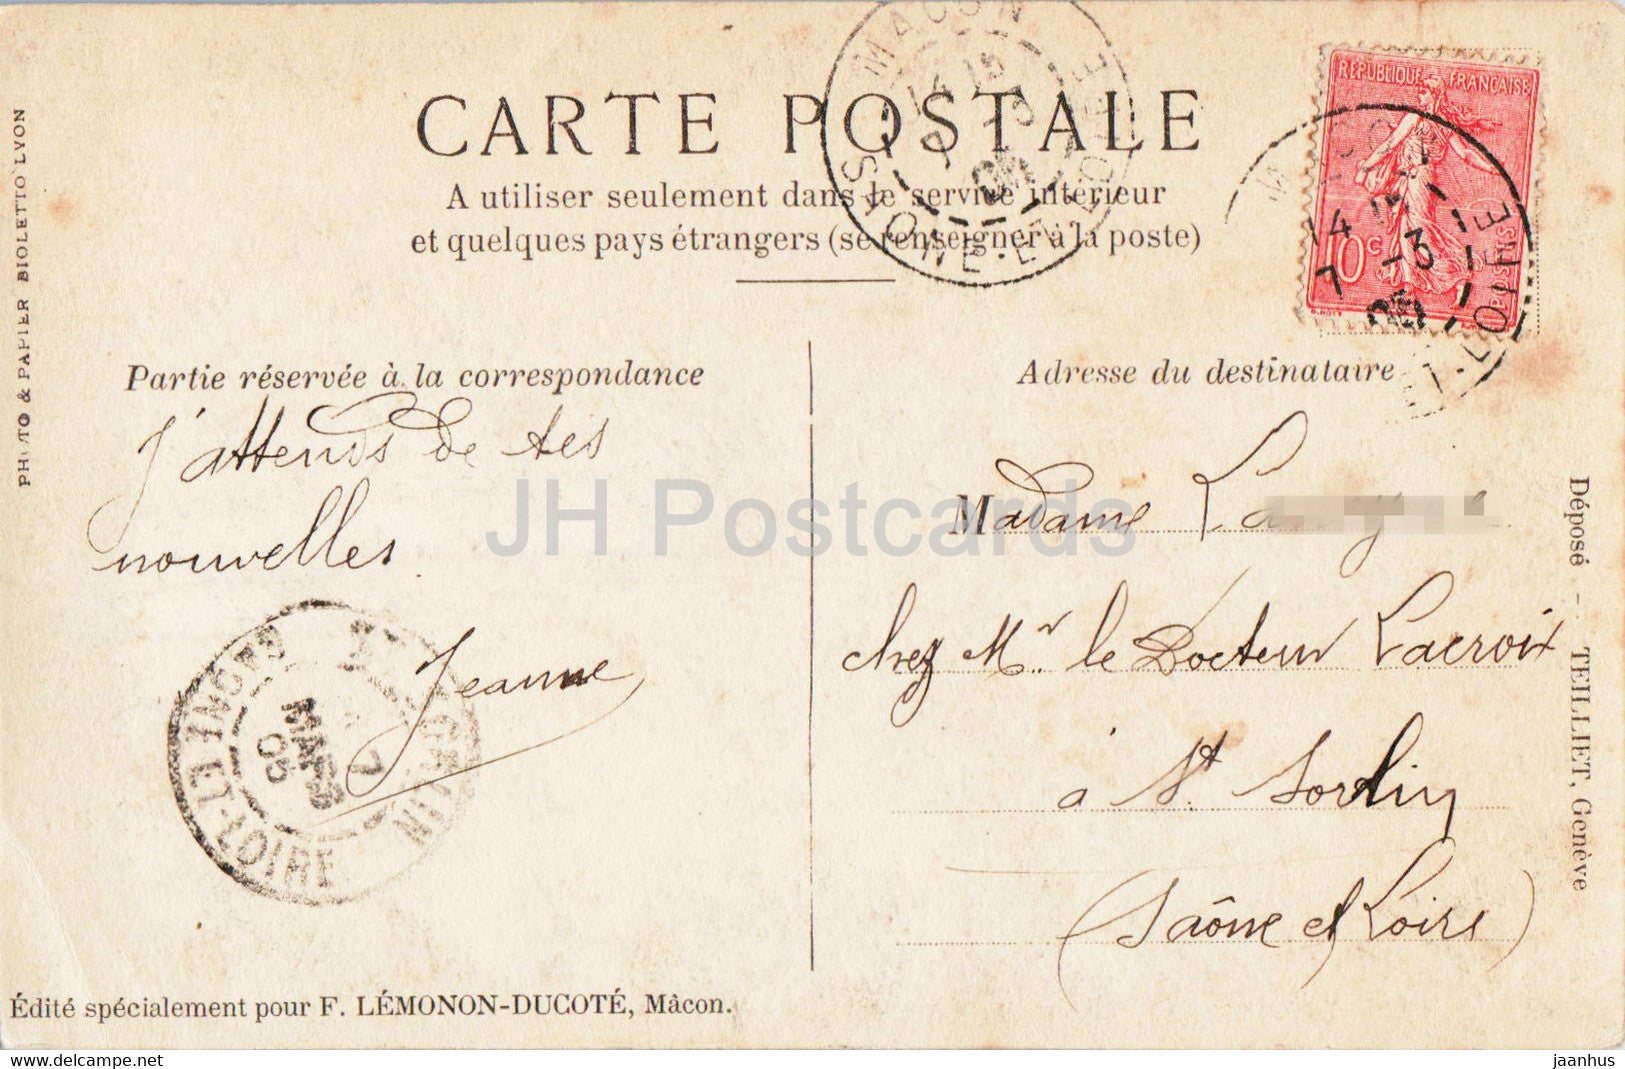 CARTE POSTALE
A utiliser seulement dans le service intérieur
et quelques pays étrangers (se renseigner à la poste)
MACON
SAONE-ET-LOIRE
14 15
7 -3
05
REPUBLIQUE FRANÇAISE
10c
POSTES
14 15
7 -3
05
LOIRE
PHOTO & PAPIER BIOLETTO LYON
Partie réservée à la correspondance
J'attends de tes
nouvelles
Jeanne
7
MARS
05
LOIRE
Édité spécialement pour F. LÉMONON-DUCOTÉ, Mâcon.
Adresse du destinataire
Madame
chez Mr le Docteur Lacroix
à St Sorlin
(Saône et Loire)
Déposé - TEILLIET, Genève
JH Postcards
https://www.delcampe.net
jaanhus